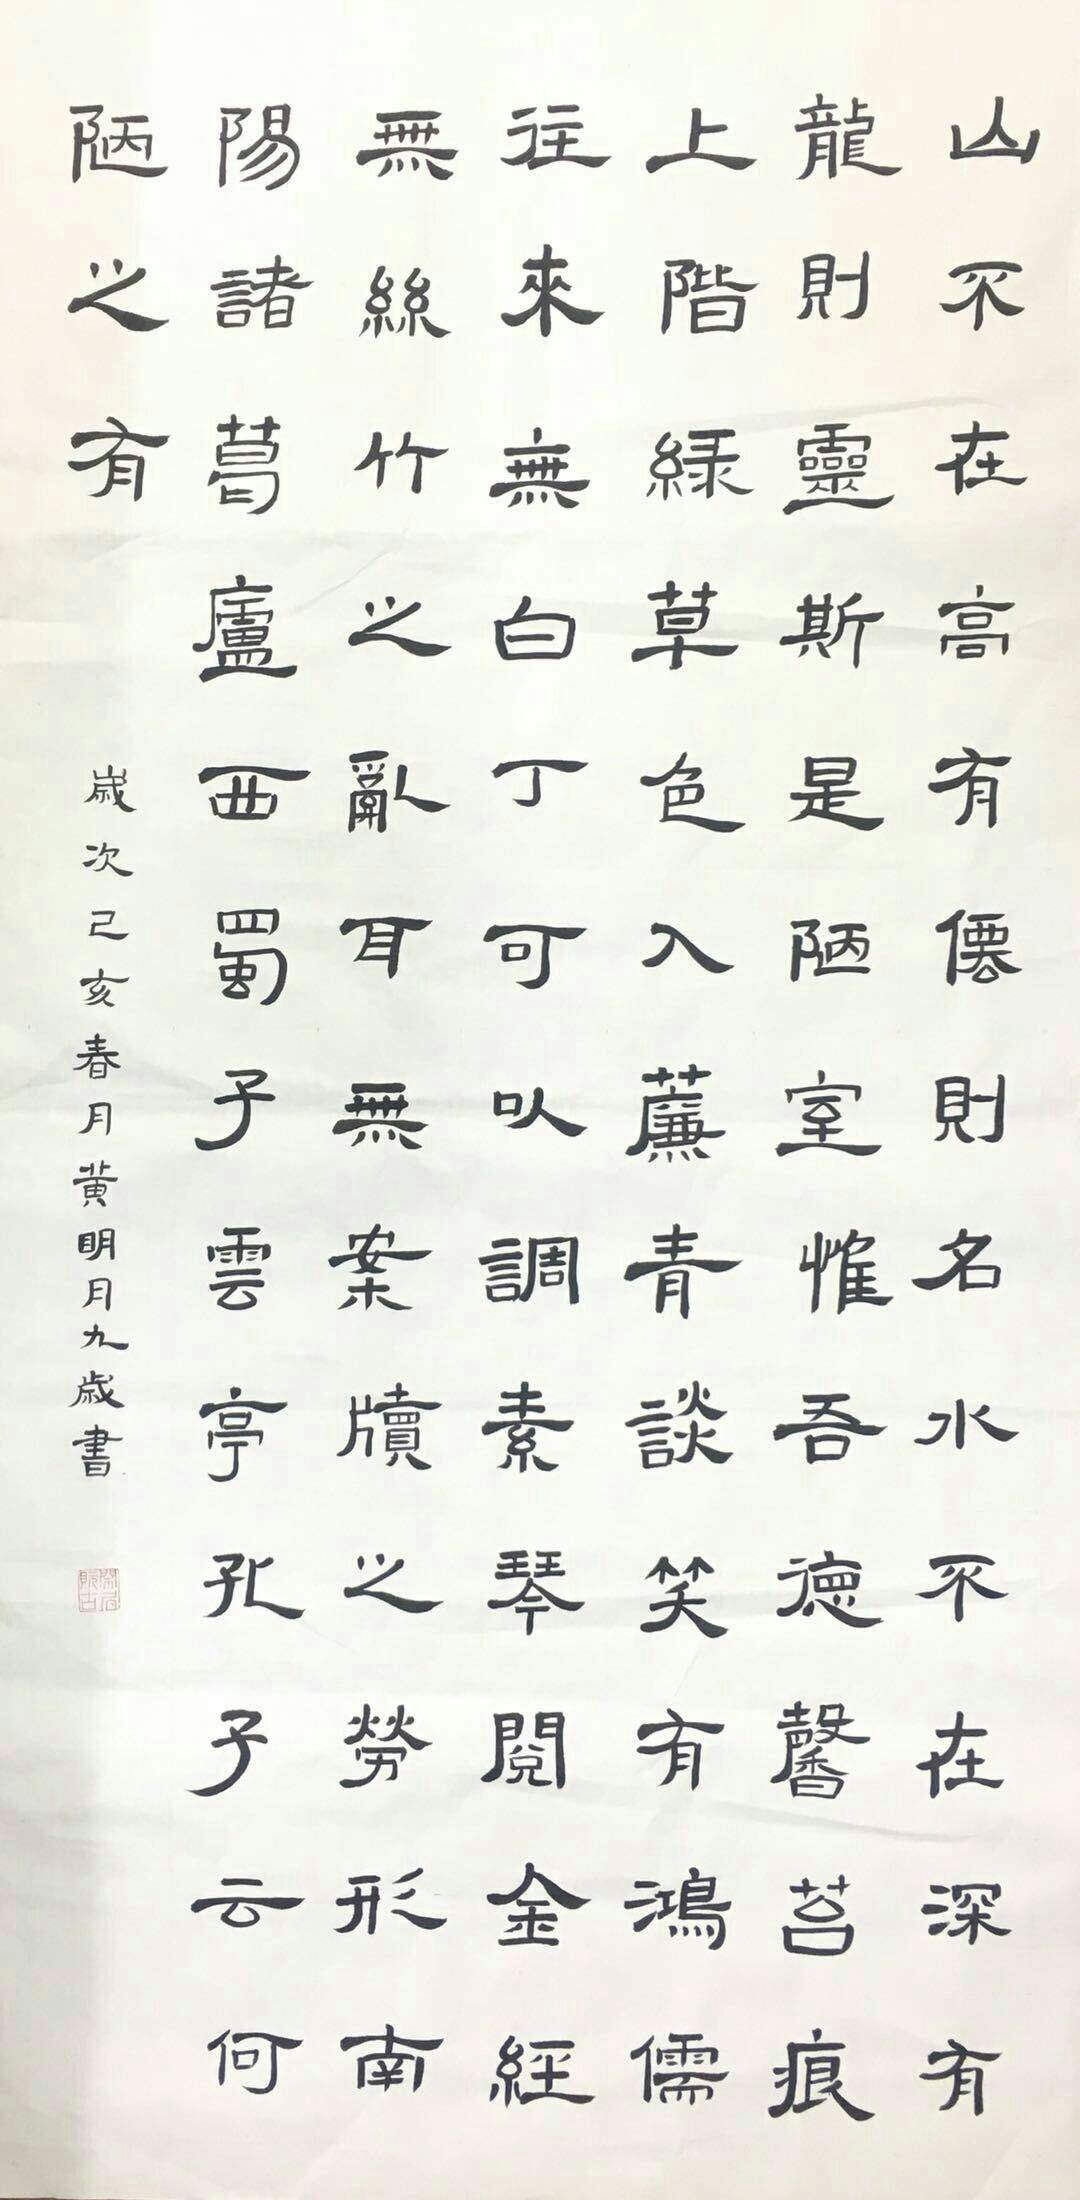 山不在高有僊則名水不在深有
龍則靈斯是陋室惟吾德馨苔痕
上階緑草色入簾青談笑有鴻儒
往來無白丁可以調素琴閱金經
無絲竹之亂耳無案牘之勞形南
陽諸葛廬西蜀子雲亭孔子云何
陋之有
歲次己亥春月黃明月九歲書